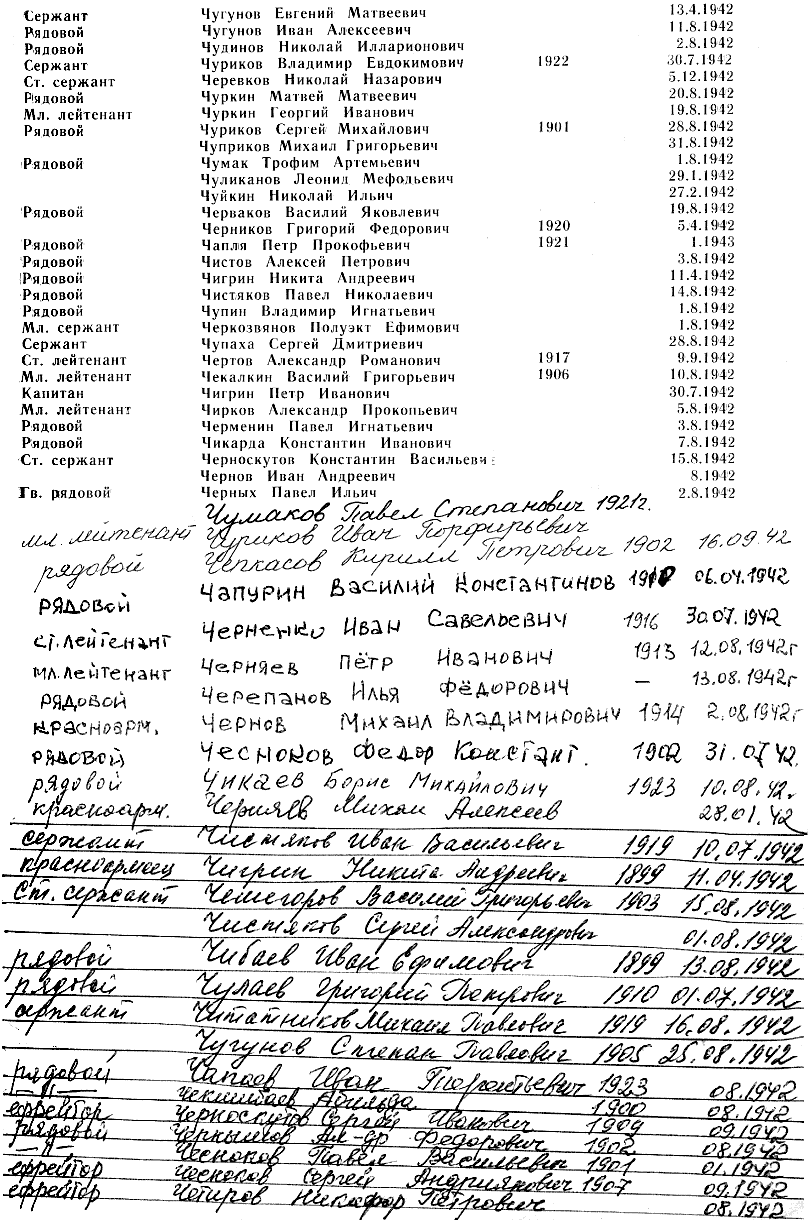 Сержант Чугунов Евгений Матвеевич 13.4.1942
Рядовой Чугунов Иван Алексеевич 11.8.1942
Рядовой Чудинов Николай Илларионович 2.8.1942
Сержант Чуриков Владимир Евдокимович 1922 30.7.1942
Ст. сержант Черевков Николай Назарович 5.12.1942
Рядовой Чуркин Матвей Матвеевич 20.8.1942
Мл. лейтенант Чуркин Георгий Иванович 19.8.1942
Рядовой Чуриков Сергей Михайлович 1901 28.8.1942
Чуприков Михаил Григорьевич 31.8.1942
Рядовой Чумак Трофим Артемьевич 1.8.1942
Чуликанов Леонид Мефодьевич 29.1.1942
Чуйкин Николай Ильич 27.2.1942
Рядовой Черваков Василий Яковлевич 19.8.1942
Черников Григорий Федорович 1920 5.4.1942
Рядовой Чапля Петр Прокофьевич 1921 1.1943
Рядовой Чистов Алексей Петрович 3.8.1942
Рядовой Чигрин Никита Андреевич 11.4.1942
Рядовой Чистяков Павел Николаевич 14.8.1942
Рядовой Чупин Владимир Игнатьевич 1.8.1942
Мл. сержант Черкозвянов Полуэкт Ефимович 1.8.1942
Сержант Чупаха Сергей Дмитриевич 28.8.1942
Ст. лейтенант Чертов Александр Романович 1917 9.9.1942
Мл. лейтенант Чекалкин Василий Григорьевич 1906 10.8.1942
Капитан Чигрин Петр Иванович 30.7.1942
Мл. лейтенант Чирков Александр Прокопьевич 5.8.1942
Рядовой Черменин Павел Игнатьевич 3.8.1942
Рядовой Чикарда Константин Иванович 7.8.1942
Ст. сержант Черноскутов Константин Васильеви
Чернов Иван Андреевич 8.1942
Гв. рядовой Черных Павел Ильич 2.8.1942
Чумаков Павел Степанович 1921г.
мл. лейтенант Чуриков Иван Порфирьевич
рядовой Чепкасов Кирилл Петрович 1902 16.09.42
рядовой Чапурин Василий Константинов 06.04.1942
ст. лейтенант Черненко Иван Савельевич 1916 30.07.1942
мл. лейтенант Черняев Пётр Иванович 1913 12.08.1942г
рядовой Черепанов Илья Фёдорович – 13.08.1942г
красноарм. Чернов Михаил Владимирович 1914 2.08.1942г
рядовой Чесноков Федор Констант. 1902 31.07.42.
рядовой Чикаев Борис Михайлович 1923 10.08.42г
красноарм. Черняев Михаил Алексеев 28.01.42
сержант Чистяков Иван Васильевич 1919 10.07.1942
красноармеец Чигрин Никита Андреевич 1899 11.04.1942
Ст. сержант Василий Григорьевич 1903 15.08.1942
Чистяков Сергей Александрович 01.08.1942
рядовой Чибаев Иван Ефимович 1899 13.08.1942
рядовой Чулаев Григорий Петрович 1910 01.07.1942
сержант Михаил Павлович 1919 16.08.1942
Чугунов Степан Павлович 1905 25.08.1942
рядовой Чапаев Иван Терентьевич 1923 08.1942
–"– 1900 08.1942
ефрейтор Черноскутов Сергей Иванович 1909 09.1942
рядовой Чернышов Ал-др Федорович 1902 08.1942
–"– Чесноков Павел Васильевич 1901 01.1942
ефрейтор Чесноков Сергей Андриякович 1907 09.1942
ефрейтор Четиров Никафор Петрович 08.1942